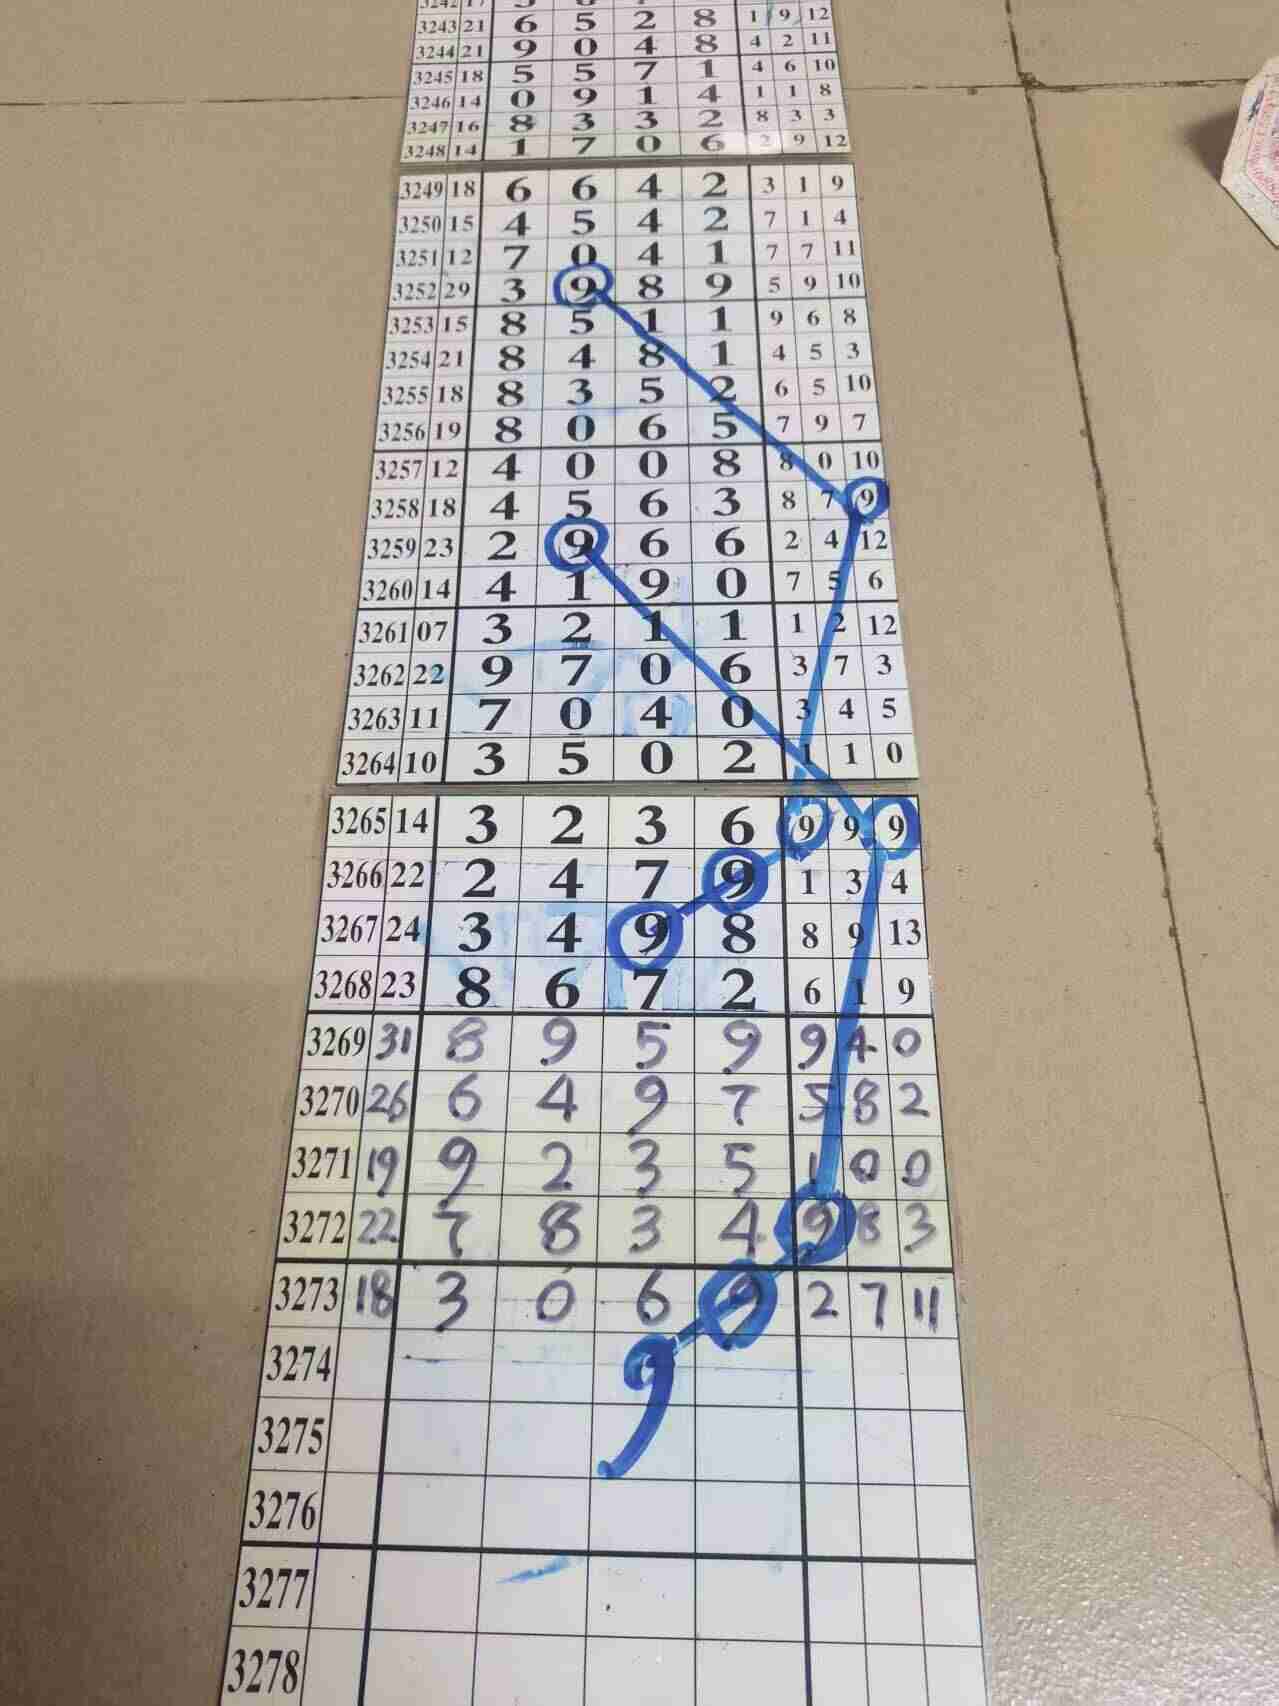 3243 21 6 5 2 8 1 9 12
3244 21 9 0 4 8 4 2 11
3245 18 5 5 7 1 4 6 10
3246 14 0 9 1 4 1 1 8
3247 16 8 3 3 2 8 3 3
3248 14 1 7 0 6 2 9 12
3249 18 6 6 4 2 3 1 9
3250 15 4 5 4 2 7 1 4
3251 12 7 0 4 1 7 7 11
3252 29 3 9 8 9 5 9 10
3253 15 8 5 1 1 9 6 8
3254 21 8 4 8 1 4 5 3
3255 18 8 3 5 2 6 5 10
3256 19 8 0 6 5 7 9 7
3257 12 4 0 0 8 8 0 10
3258 18 4 5 6 3 8 7 9
3259 23 2 9 6 6 2 4 12
3260 14 4 1 9 0 7 5 6
3261 07 3 2 1 1 1 2 12
3262 22 9 7 0 6 3 7 3
3263 11 7 0 4 0 3 4 5
3264 10 3 5 0 2 1 1 0
3265 14 3 2 3 6 9 9 9
3266 22 2 4 7 9 1 3 4
3267 24 3 4 9 8 8 9 13
3268 23 8 6 7 2 6 1 9
3269 31 8 9 5 9 9 4 0
3270 26 6 4 9 7 5 8 2
3271 19 9 2 3 5 1 0 0
3272 22 7 8 3 4 9 8 3
3273 18 3 0 6 9 2 7 11
3274 9
3275
3276
3277
3278